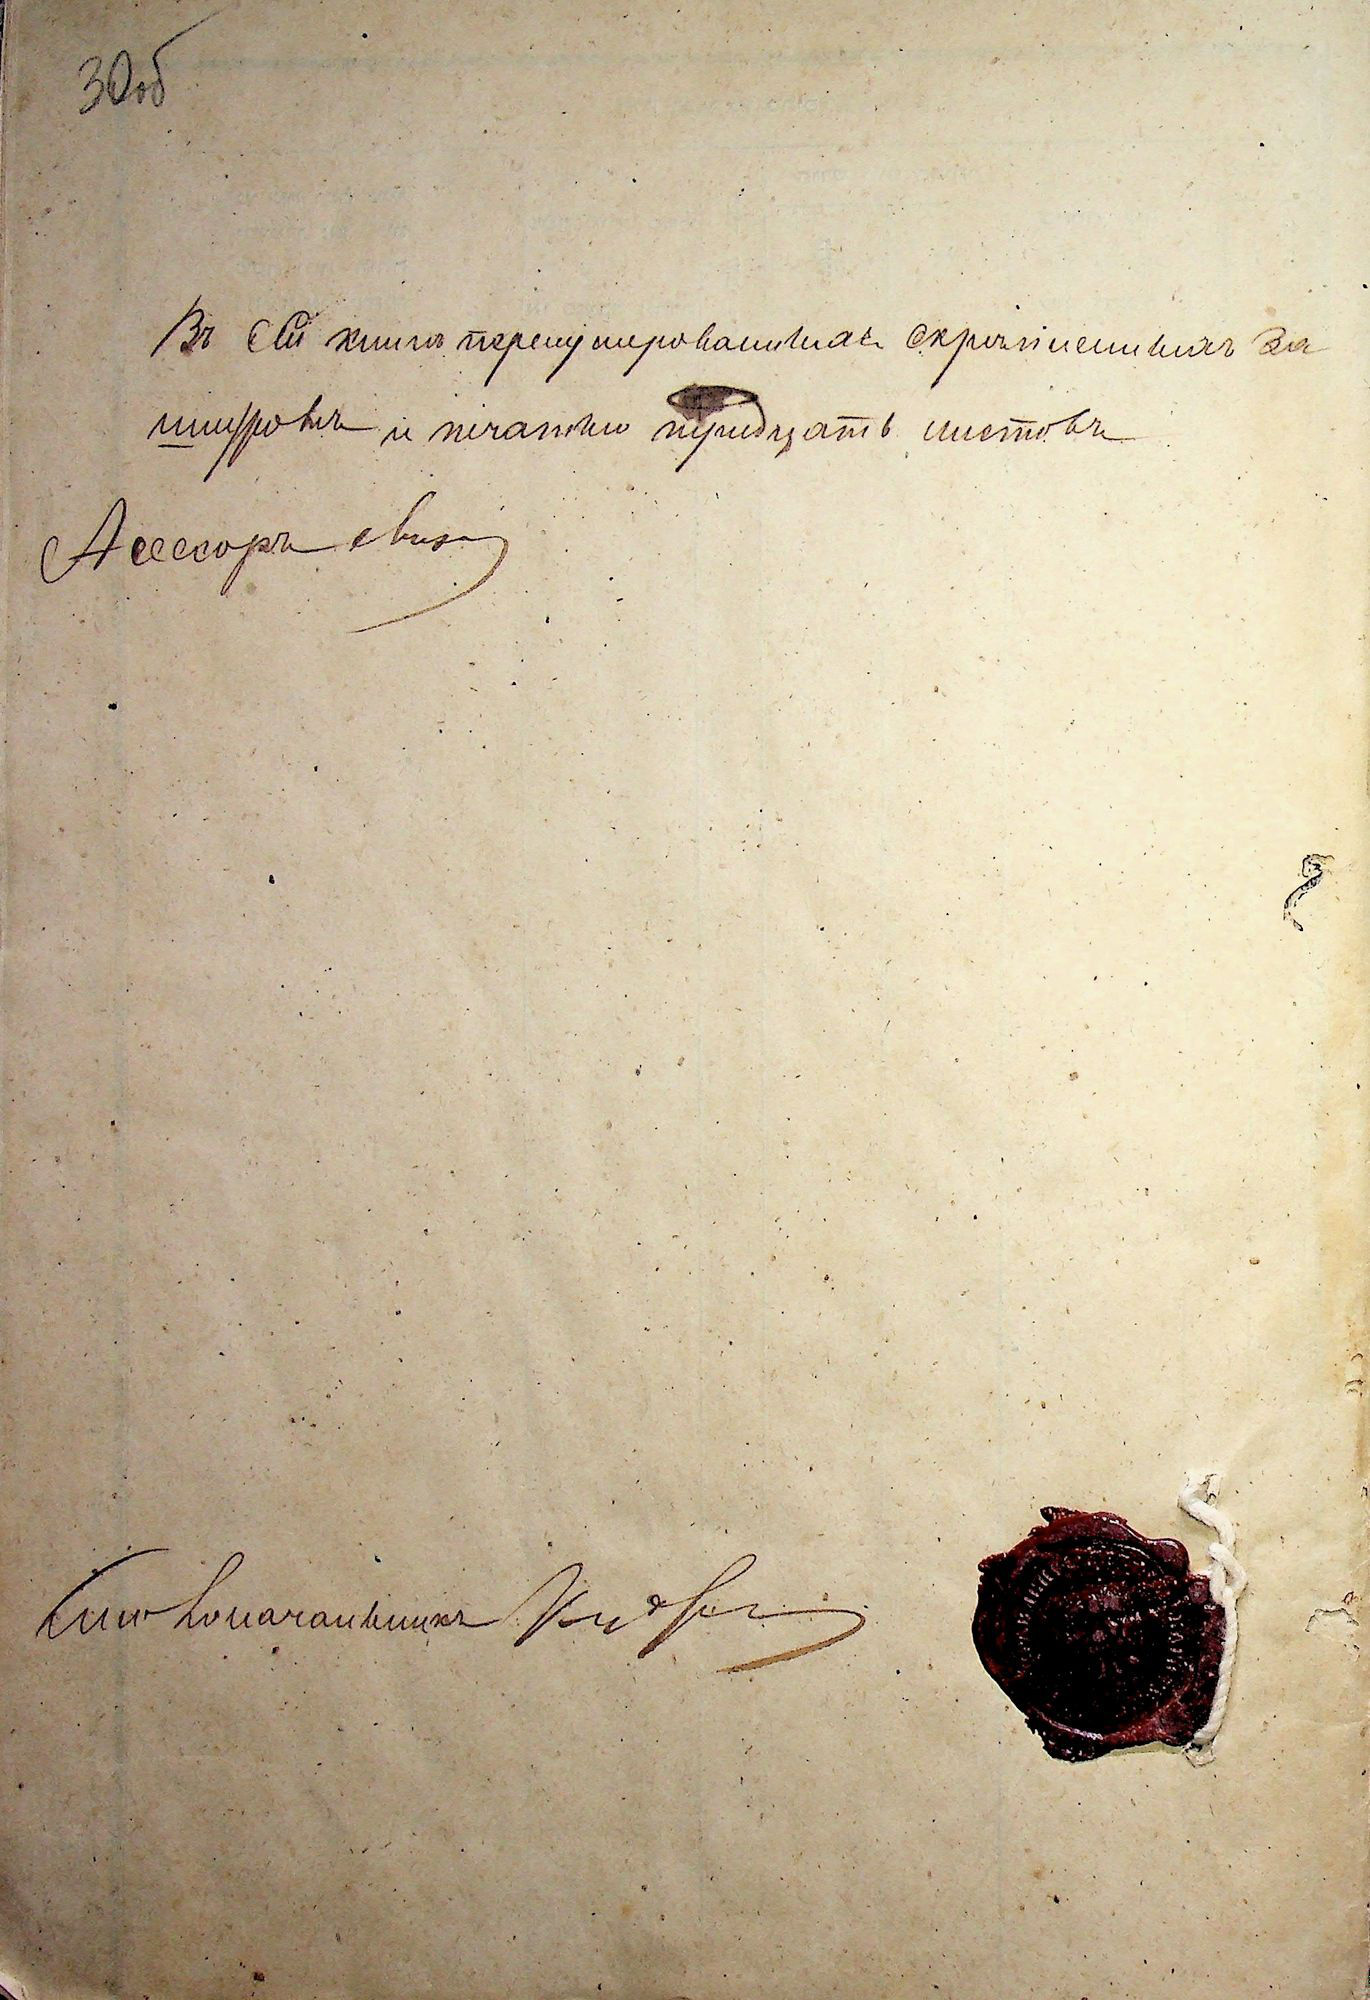 30об
Въ сей книгѣ перенумерованныхъ скрѣпленныхъ за
шнуромъ и печатью тридцать листовъ
Асессоръ
Столоначальникъ